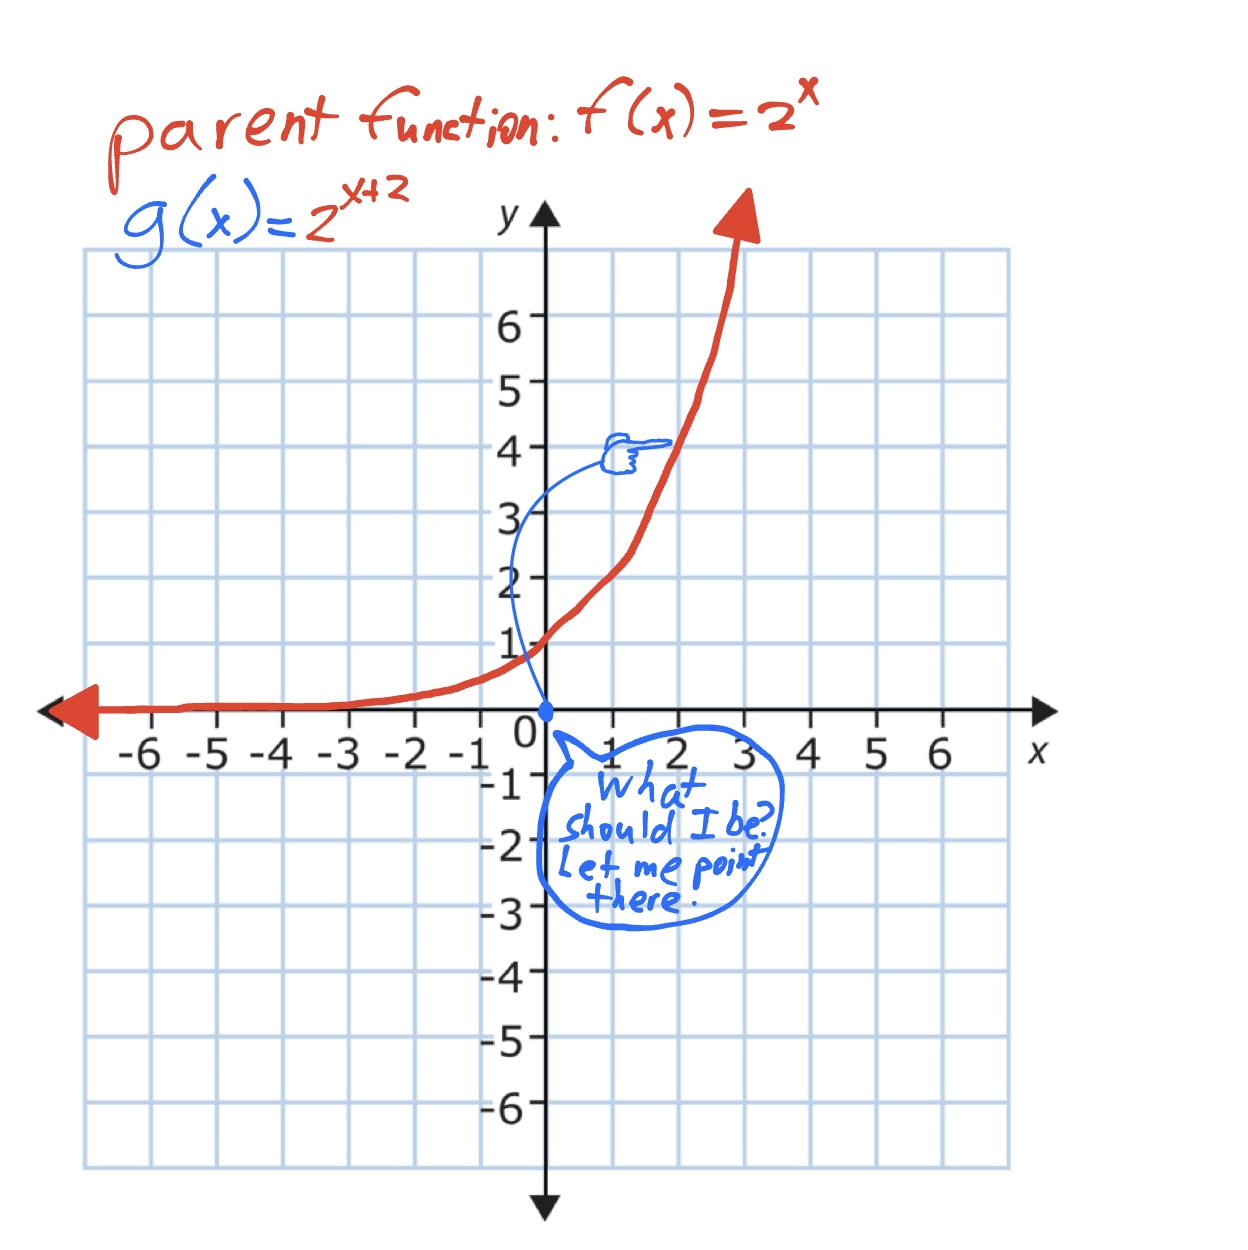 parent function: f(x)=2^x
g(x)=2^{x+2}
y
6
5
4
3
2
1
0
-6 -5 -4 -3 -2 -1 1 2 3 4 5 6 x
-1
-2
-3
-4
-5
-6
What
should I be?
Let me point
there.